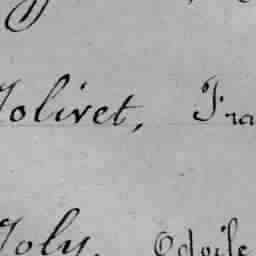 Jolivet, Fra
Joly, Odoile